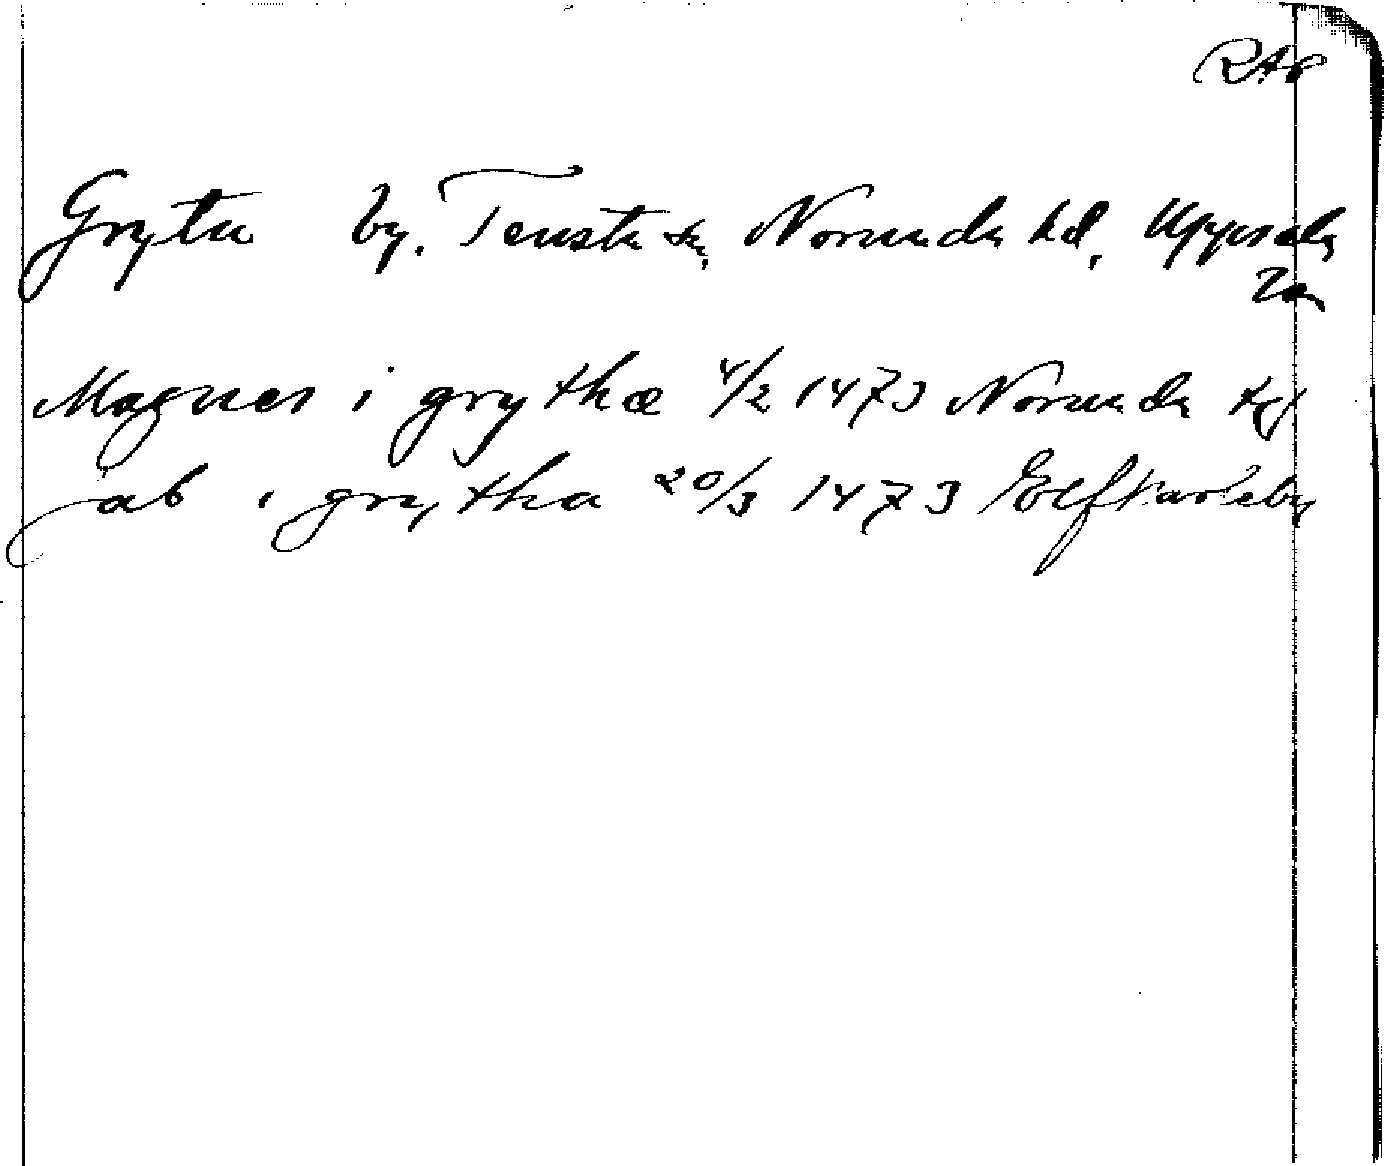 RAP
Gryta by, Tensta sn, Norunda hd, Uppsala
län
Magnes i grythæ 4/2 1473 Norunda
iab i grytha 20/3 1473 Elfkarleby